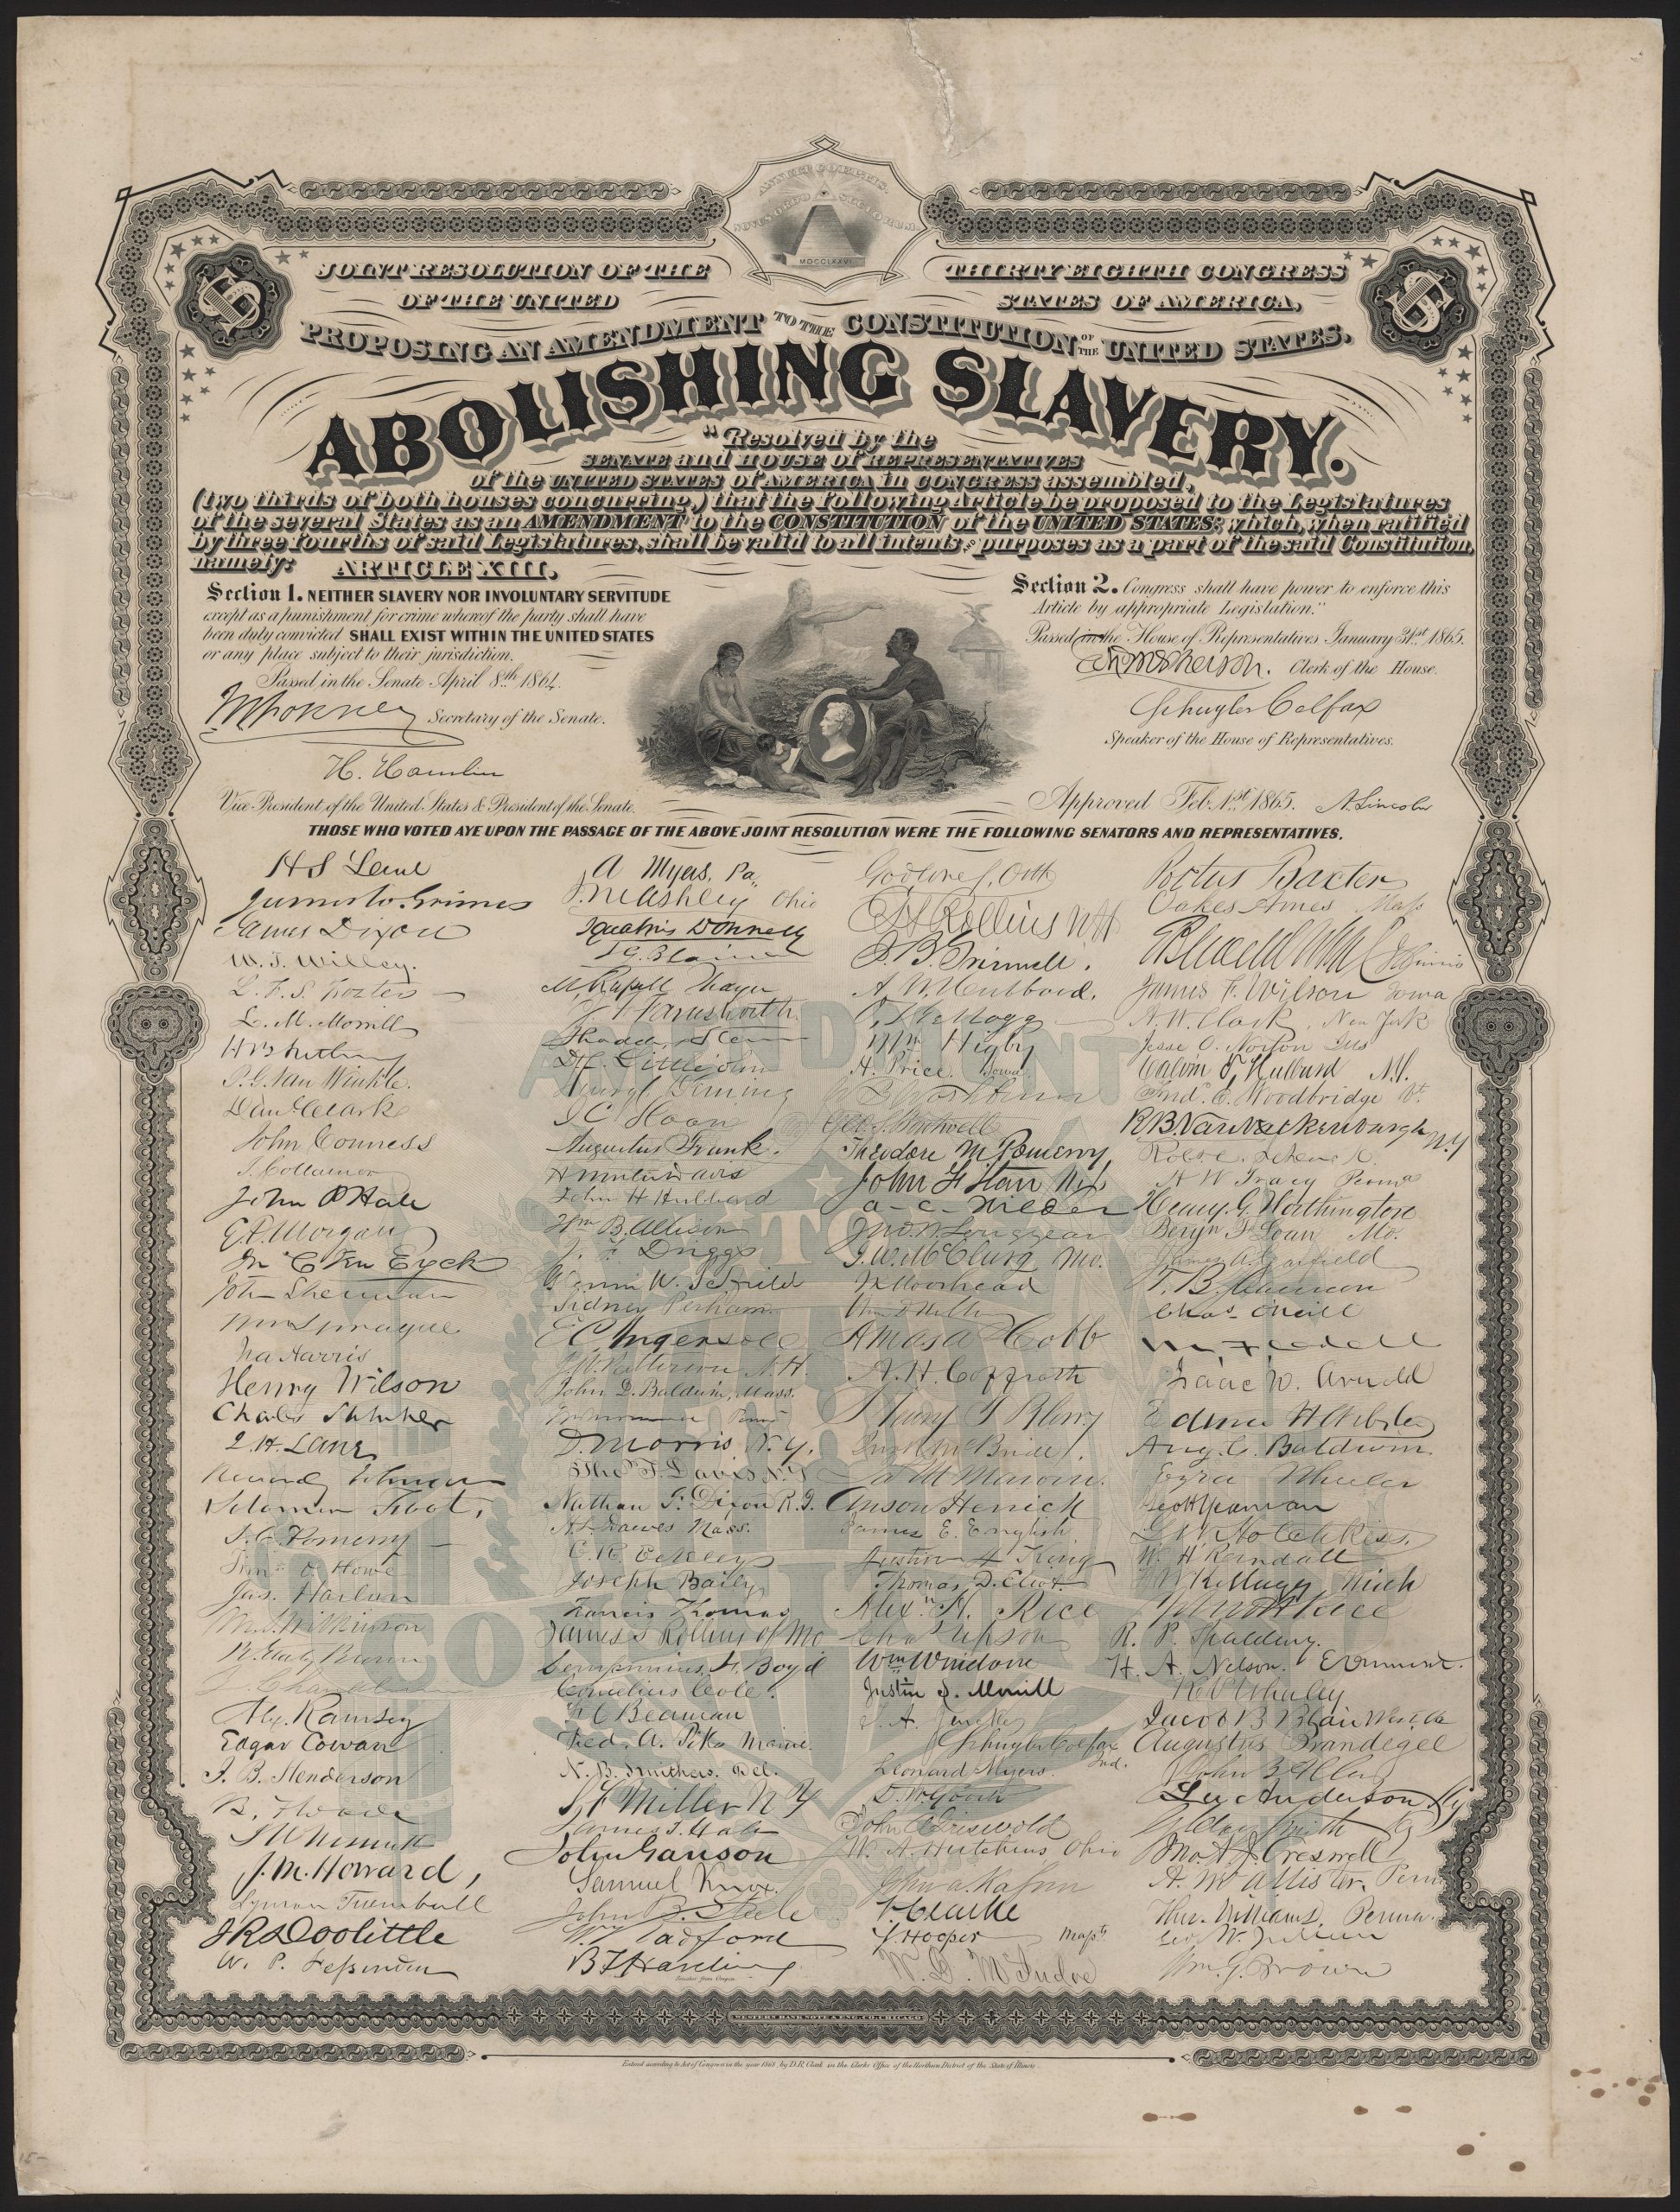 ANNUIT CŒPTIS.
NOVUS ORDO SECLORUM.
MDCCLXXVI
JOINT RESOLUTION OF THE THIRTY EIGHTH CONGRESS
OF THE UNITED STATES OF AMERICA,
PROPOSING AN AMENDMENT TO THE CONSTITUTION OF THE UNITED STATES.
ABOLISHING SLAVERY.
"Resolved by the
SENATE and HOUSE of REPRESENTATIVES
of the UNITED STATES of AMERICA in CONGRESS assembled,
(two thirds of both houses concurring,) that the following Article be proposed to the Legislatures
of the several States as an AMENDMENT to the CONSTITUTION of the UNITED STATES; which, when ratified
by three fourths of said Legislatures, shall be valid to all intents AND purposes as a part of the said Constitution,
namely: ARTICLE XIII.
Section 1. NEITHER SLAVERY NOR INVOLUNTARY SERVITUDE
except as a punishment for crime whereof the party shall have
been duly convicted SHALL EXIST WITHIN THE UNITED STATES
or any place subject to their jurisdiction.
Passed in the Senate April 8th 1864.
Secretary of the Senate.
H. Hamlin
Vice President of the United States & President of the Senate.
Section 2. Congress shall have power to enforce this
Article by appropriate Legislation."
Passed in the House of Representatives January 31st 1865.
McPherson. Clerk of the House.
Schuyler Colfax
Speaker of the House of Representatives.
Approved Feb. 1st 1865. A. Lincoln
THOSE WHO VOTED AYE UPON THE PASSAGE OF THE ABOVE JOINT RESOLUTION WERE THE FOLLOWING SENATORS AND REPRESENTATIVES.
H S Lane
James W. Grimes
James Dixon
W. T. Willey.
L. F. S. Foster
L. M. Morrill
P. G. Van Winkle.
Dan Clark
John Conness
J. Collamer
John P Hale
E. D. Morgan
Jn C Ten Eyck
John Sherman
Wm Sprague
Ira Harris
Henry Wilson
Charles Sumner
J. H. Lane
Reverdy Johnson
Solomon Foot.
S. C. Pomeroy
Jas. Harlan
B. Gratz Brown
Alex. Ramsey
Edgar Cowan
J. B. Henderson
J. M. Howard,
Lyman Trumbull
J R Doolittle
W. P. Fessenden
A Myers, Pa.
J. M. Ashley Ohio
Ignatius Donnelly
J. G. Blaine
M. Russell Thayer
J. F. Farnsworth
Thaddeus Stevens
D. C. Littlejohn
Henry C. Deming
I C Sloan
Augustus Frank.
H Winter Davis
John H Hubbard
Wm B. Allison
J. F. Driggs
Glenni W. Scofield
Sidney Perham.
E C Ingersoll
J. W. Patterson N. H.
John D. Baldwin, Mass.
D. Morris N. Y.
Tho T. Davis N. Y
Nathan F. Dixon R. I.
H. L. Dawes Mass.
E. R. Eckley
Joseph Baily
Francis Thomas
James S Rollins of Mo
Sempronius H. Boyd
Cornelius Cole.
F C Beaman
Fred. A. Pike Maine.
N. B. Smithers. Del.
S F Miller N Y
James T. Hale
John Ganson
Samuel Knox.
John B. Steele
Wm Radford
B F Harding
Senator from Oregon
Godlove S. Orth
E H Rollins N H
J. B. Grinnell.
A. W. Hubbard.
O. Kellogg
Wm Higby
H. Price. Iowa
Geo. S. Boutwell
Theodore M. Pomeroy
John F Starr NJ
A. C. Wilder
Jno. W. Longyear
J. W. McClurg Mo.
J K Moorhead
Amasa Cobb
A. H. Coffroth
Henry T Blow
Jno R McBride.
Ja M Marvin.
Anson Herrick
James E. English
Austin A King
Thomas D. Eliot.
Alex. H. Rice
Chas Upson
Wm Windom
Justin S. Morrill
T. A. Jenckes
Schuyler Colfax Ind.
Leonard Myers.
D. W. Gooch
John A Griswold
W. A. Hutchins Ohio
John A. Kasson
F. Clarke
S. Hooper Masstts
Portus Baxter
Oakes Ames Mass
E B Washburne Illinois
James F. Wilson Iowa
A. W. Clark, New York
Jesse O. Norton Ills
Calvin T. Hulburd N. Y.
Fred. E. Woodbridge Vt.
R B Van Valkenburgh N. Y
Robt. C. Schenck
H W Tracy Penna
Henry G. Worthington
Benjn F. Loan Mo.
James A. Garfield
Chas. O'Neill
Isaac N. Arnold
Edwin H Webster
Aug. C. Baldwin.
Ezra Wheeler
Geo H Yeaman
G W Hotchkiss.
W. H Randall
F W Kellogg Mich
John H Rice
R. P. Spalding.
H. A. Nelson.
K. V. Whaley
Jacob B Blair West. Va
Augustus Brandegee
Lu. Anderson Ky
G Clay Smith Ky
Jno. A J. Creswell
A. McAllister, Penn
Thos. Williams, Penna.
Geo W. Julian
Wm. G. Brown
AMENDMENT
TO
THE
CONSTITUTION
WESTERN BANK NOTE & ENG. CO. CHICAGO
Entered according to Act of Congress in the year 1868 by D. R. Clark in the Clerks Office of the Northern District of the State of Illinois.